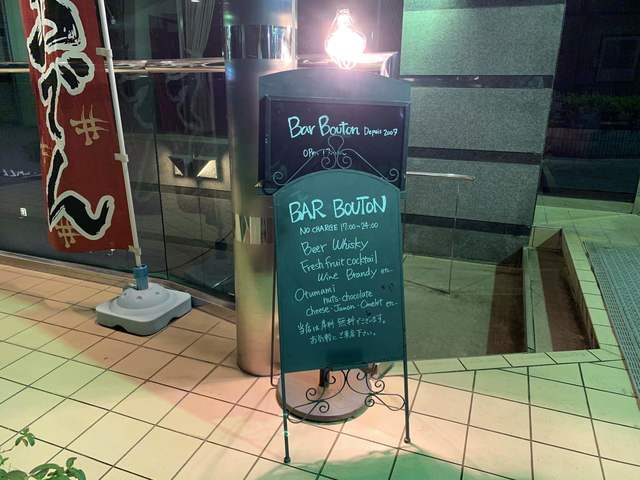 おでん
Bar Bouton Depuis 2009
BAR BOUTON
NO CHARGE 17:00~24:00
Beer Whisky
Fresh fruit cocktail
Wine Brandy etc..
Otumami
nuts・chocolate
cheese・Jamon・Omelet etc..
当店は席料無料でございます。
お気軽にご来店下さい。